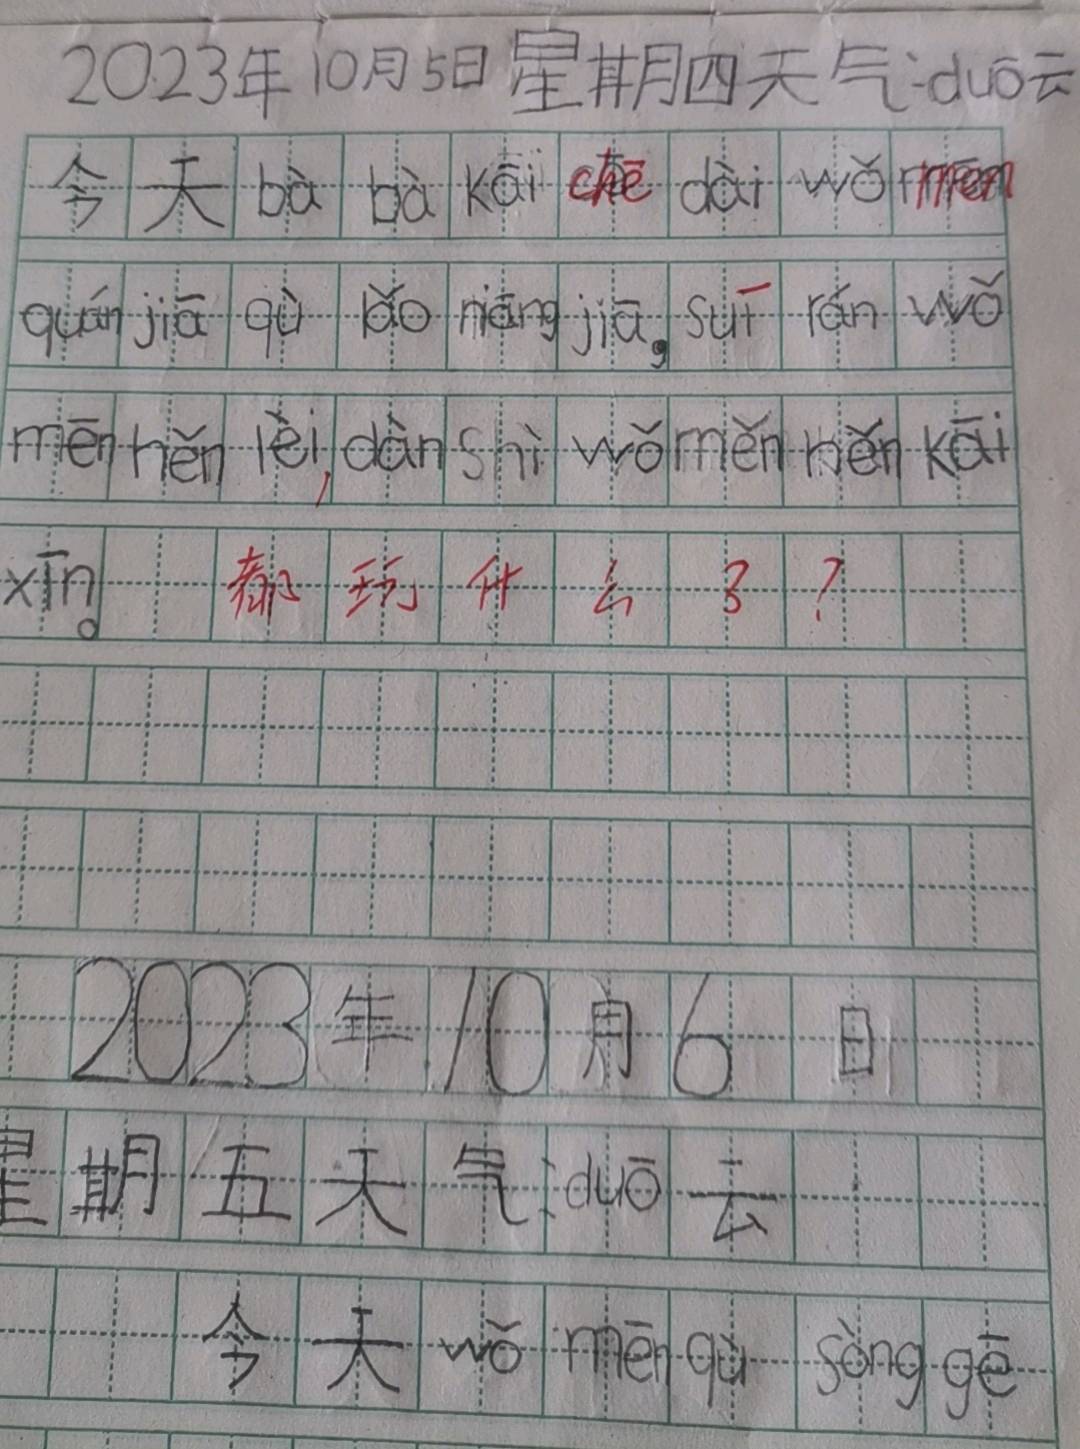 2023年10月5日星期四天气:duō云
今天bà bà kāi chē dài wǒ mēn
quán jiā qù lǎo niāng jiā, suī rán wǒ
mēn hěn lèi, dàn shì wǒ měn hěn kāi
xīn。 都玩什么了?
2023年10月6日
星期五天气:duō云
今天wǒ mēn qù sòng gē